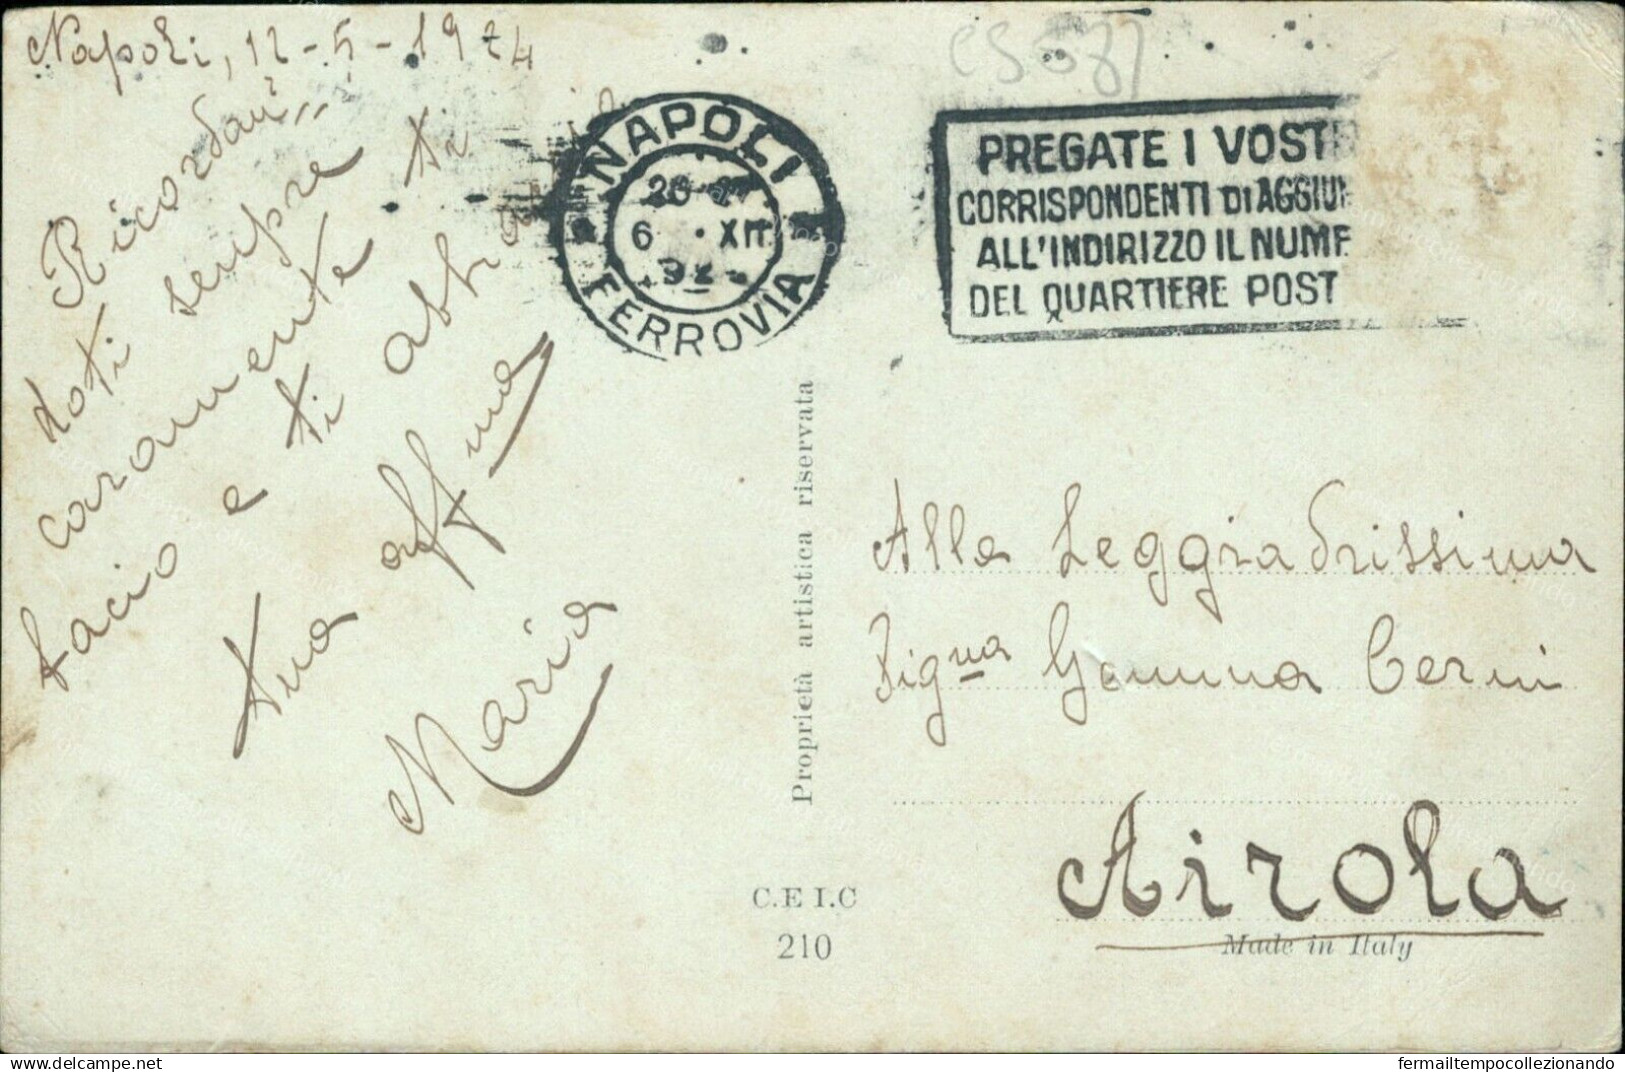 Napoli, 12-5-1924
Ricordan
doti sempre
caramente ti
bacio e ti abbra
tua aff ma
Maria
NAPOLI
20-21
6 · XII
192
FERROVIA
PREGATE I VOST
CORRISPONDENTI DI AGGIUN
ALL'INDIRIZZO IL NUME
DEL QUARTIERE POST
Proprietà artistica riservata
C.E I.C
210
Alla Leggiadrissima
Sig.na Gemma Cerni
Airola
Made in Italy
delcampe.net
fermailtempocollezionando